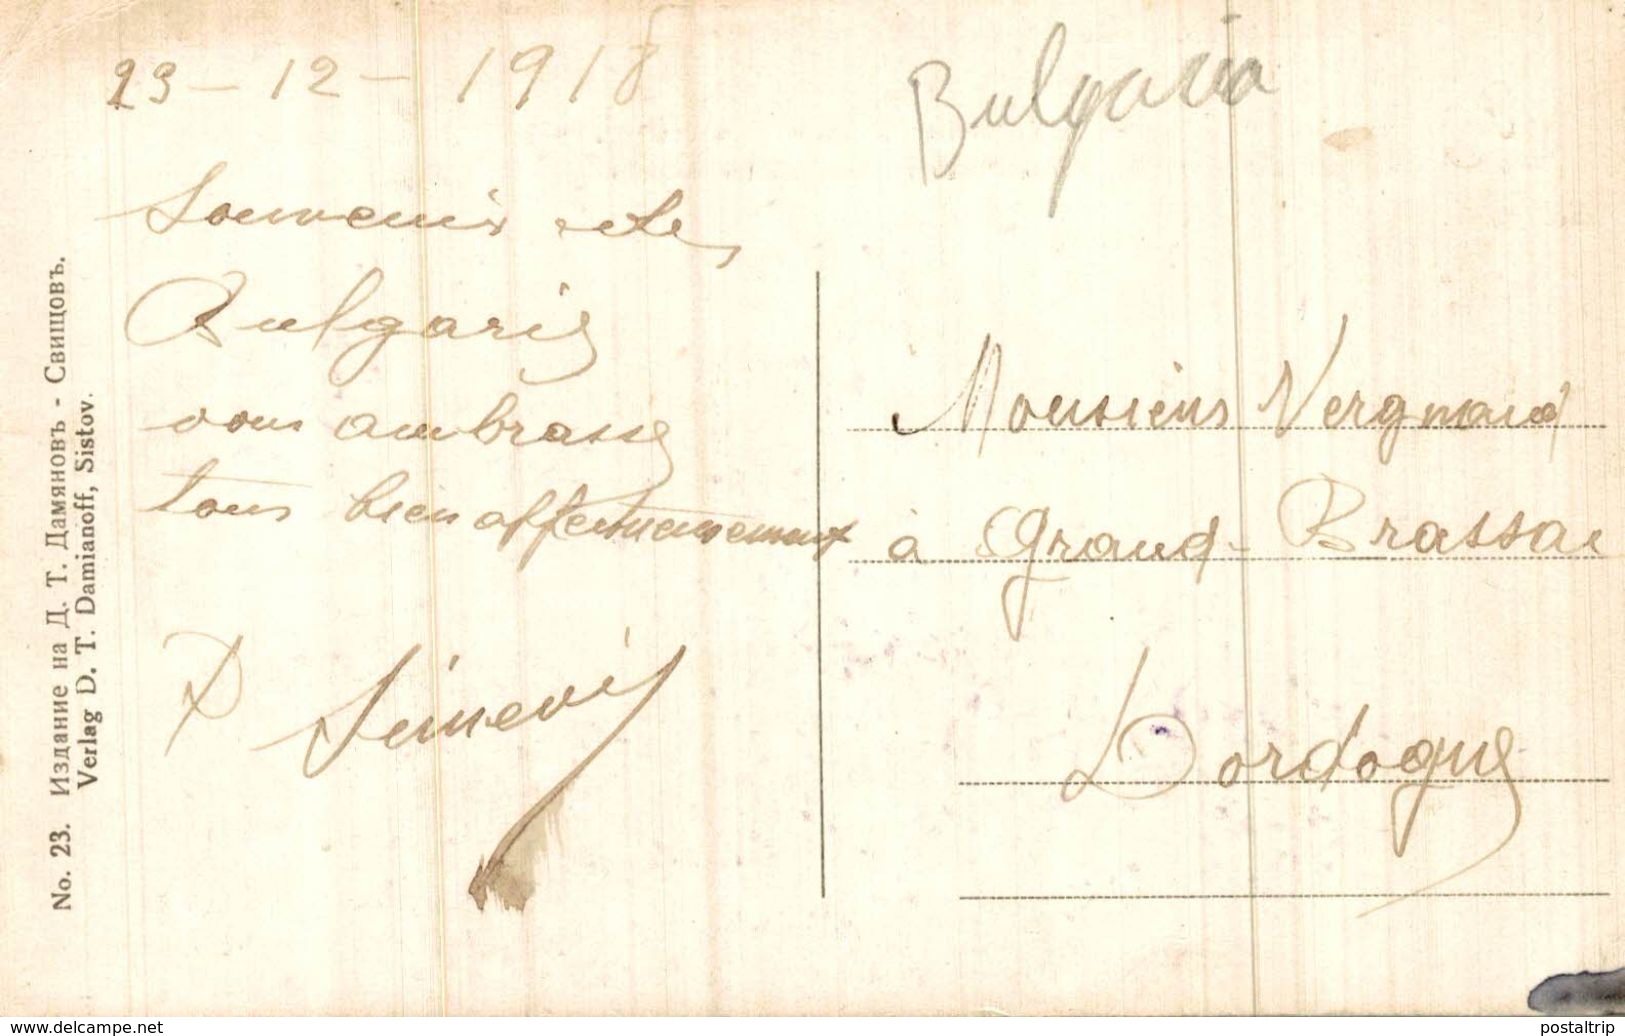 23-12-1918
Souvenir de
Bulgarie
vous ambrasse
tous bien affectueusement
Bulgaria
Monsieur Vergnaud
à Grand-Brassac
Dordogne
No. 23. Издание на Д. Т. Дамяновъ - Свищовъ.
Verlag D. T. Damianoff, Sistov.
www.delcampe.net
postaltrip